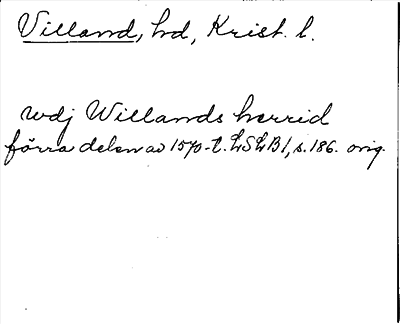 Villand, hd, Krist. l.
wdj Willands herrid
förra delen av 1570-t. LSLB1, s. 186. orig.